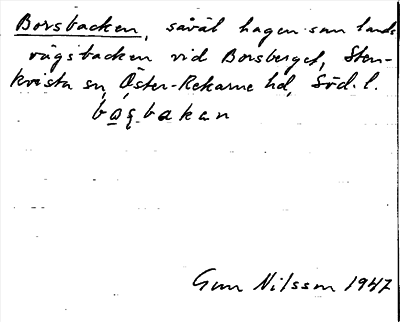 Borsbacken, såväl hagen som lands
vägsbacken vid Borsberget, Sten-
kvista sn, Öster-Rekarne hd, Söd. l.
bas̨bakan
Gun Nilsson 1947